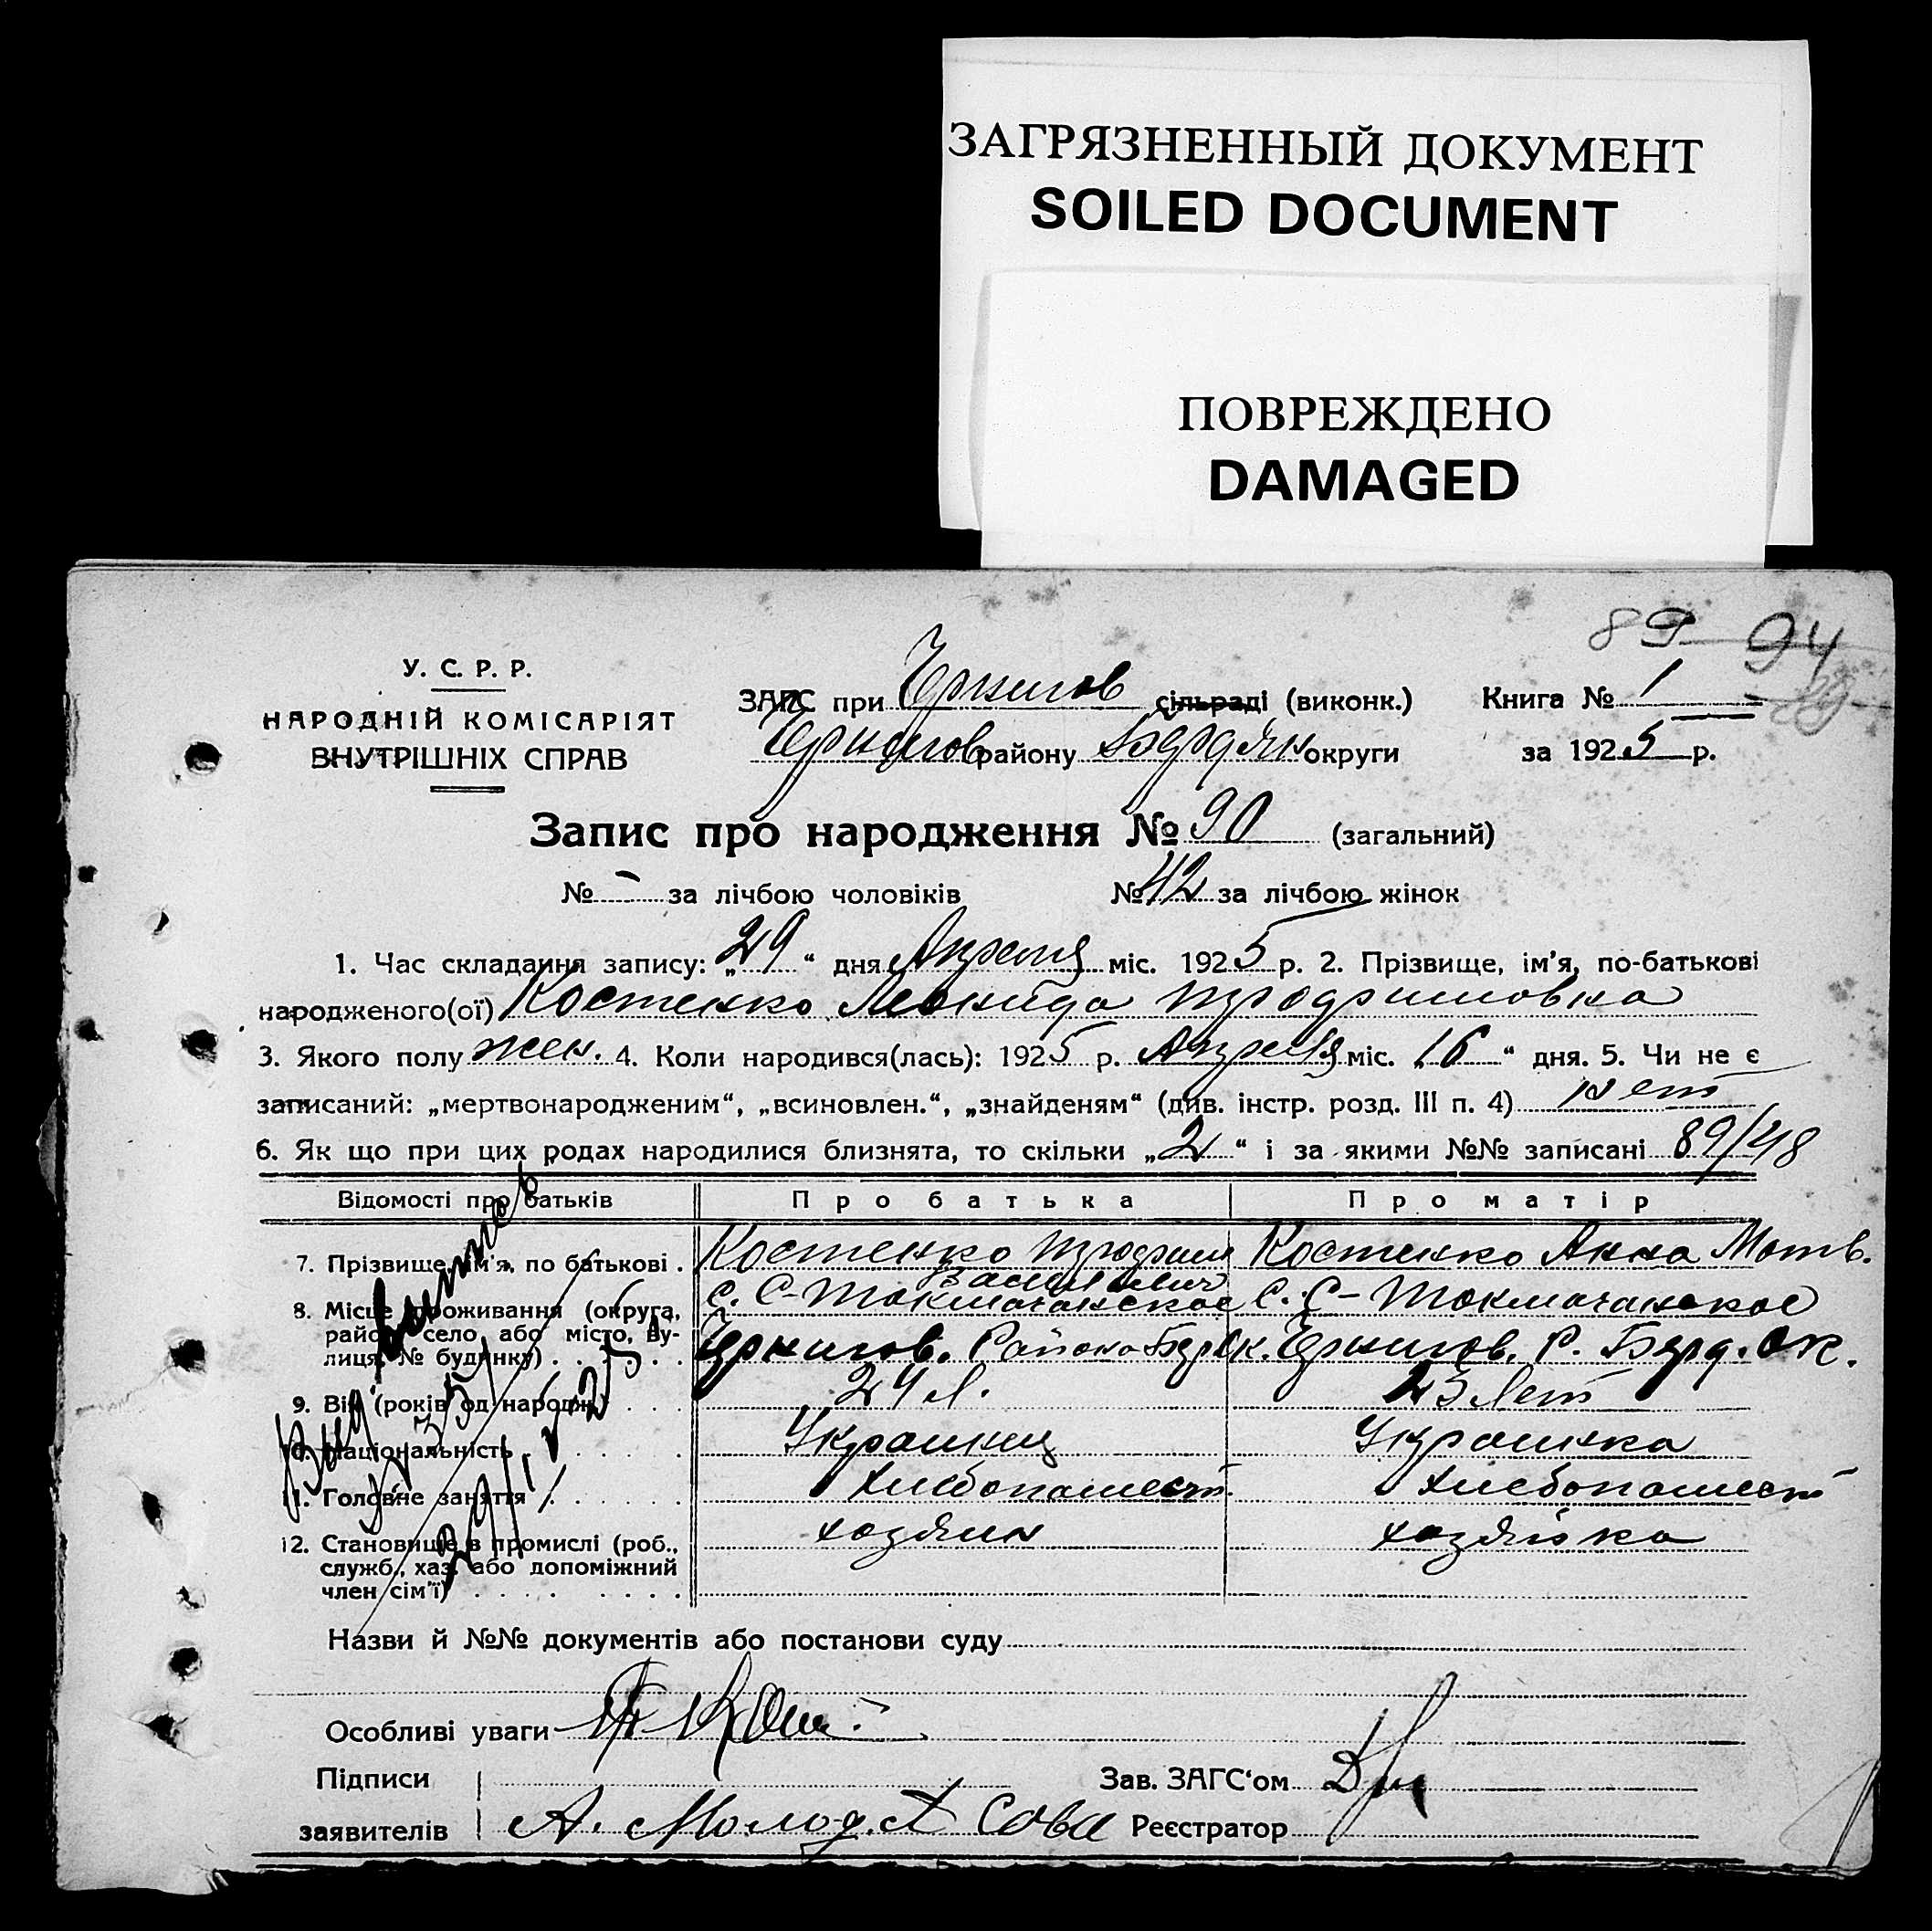 ЗАГРЯЗНЕННЫЙ ДОКУМЕНТ
SOILED DOCUMENT
ПОВРЕЖДЕНО
DAMAGED
89 94
У. С. Р. Р.
НАРОДНІЙ КОМІСАРІЯТ
ВНУТРІШНІХ СПРАВ
ЗАГС при Чернигов сільраді (виконк.) Книга № 1
Чернигов району Бердян округи за 1925 р.
Запис про народження № 90 (загальний)
№ - за лічбою чоловіків № 42 за лічбою жінок
1. Час складання запису: „29“ дня Апреля міс. 1925 р. 2. Прізвище, ім'я, по-батькові
народженого(ої) Костенко Леонида
3. Якого полу жен. 4. Коли народився(лась): 1925 р. Апреля міс. „16“ дня. 5. Чи не є
записаний: „мертвонародженим“, „всиновлен.“, „знайденям“ (див. інстр. розд. III п. 4) нет
6. Як що при цих родах народилися близнята, то скільки „2“ і за якими №№ записані 89/48
Відомості про батьків Про батька Про матір
7. Прізвище, ім'я, по батькові . Костенко Костенко Анна Матв.
8. Місце проживання (округа, район, село або місто, вулиця, № будинку) . . . . . с. С-Токмачанское с. С-Токмачанское
Чернигов. Района Бер Ок. Чернигов. Р. Берд. Ок.
9. Вік (років од народж.) . . . 24 л. 23 лет
10. Національність . . . . . Украинец Украинка
11. Головне заняття . . . . . . Хлебопашест. Хлебопашест
12. Становище в промислі (роб., хозяин хозяйка
служб., хаз. або допоміжний
член сім'ї) . . . . . . . .
29/IV 25
Назви й №№ документів або постанови суду
Особливі уваги
Підписи Зав. ЗАГС'ом
заявителів А. Молод. Сова Реєстратор